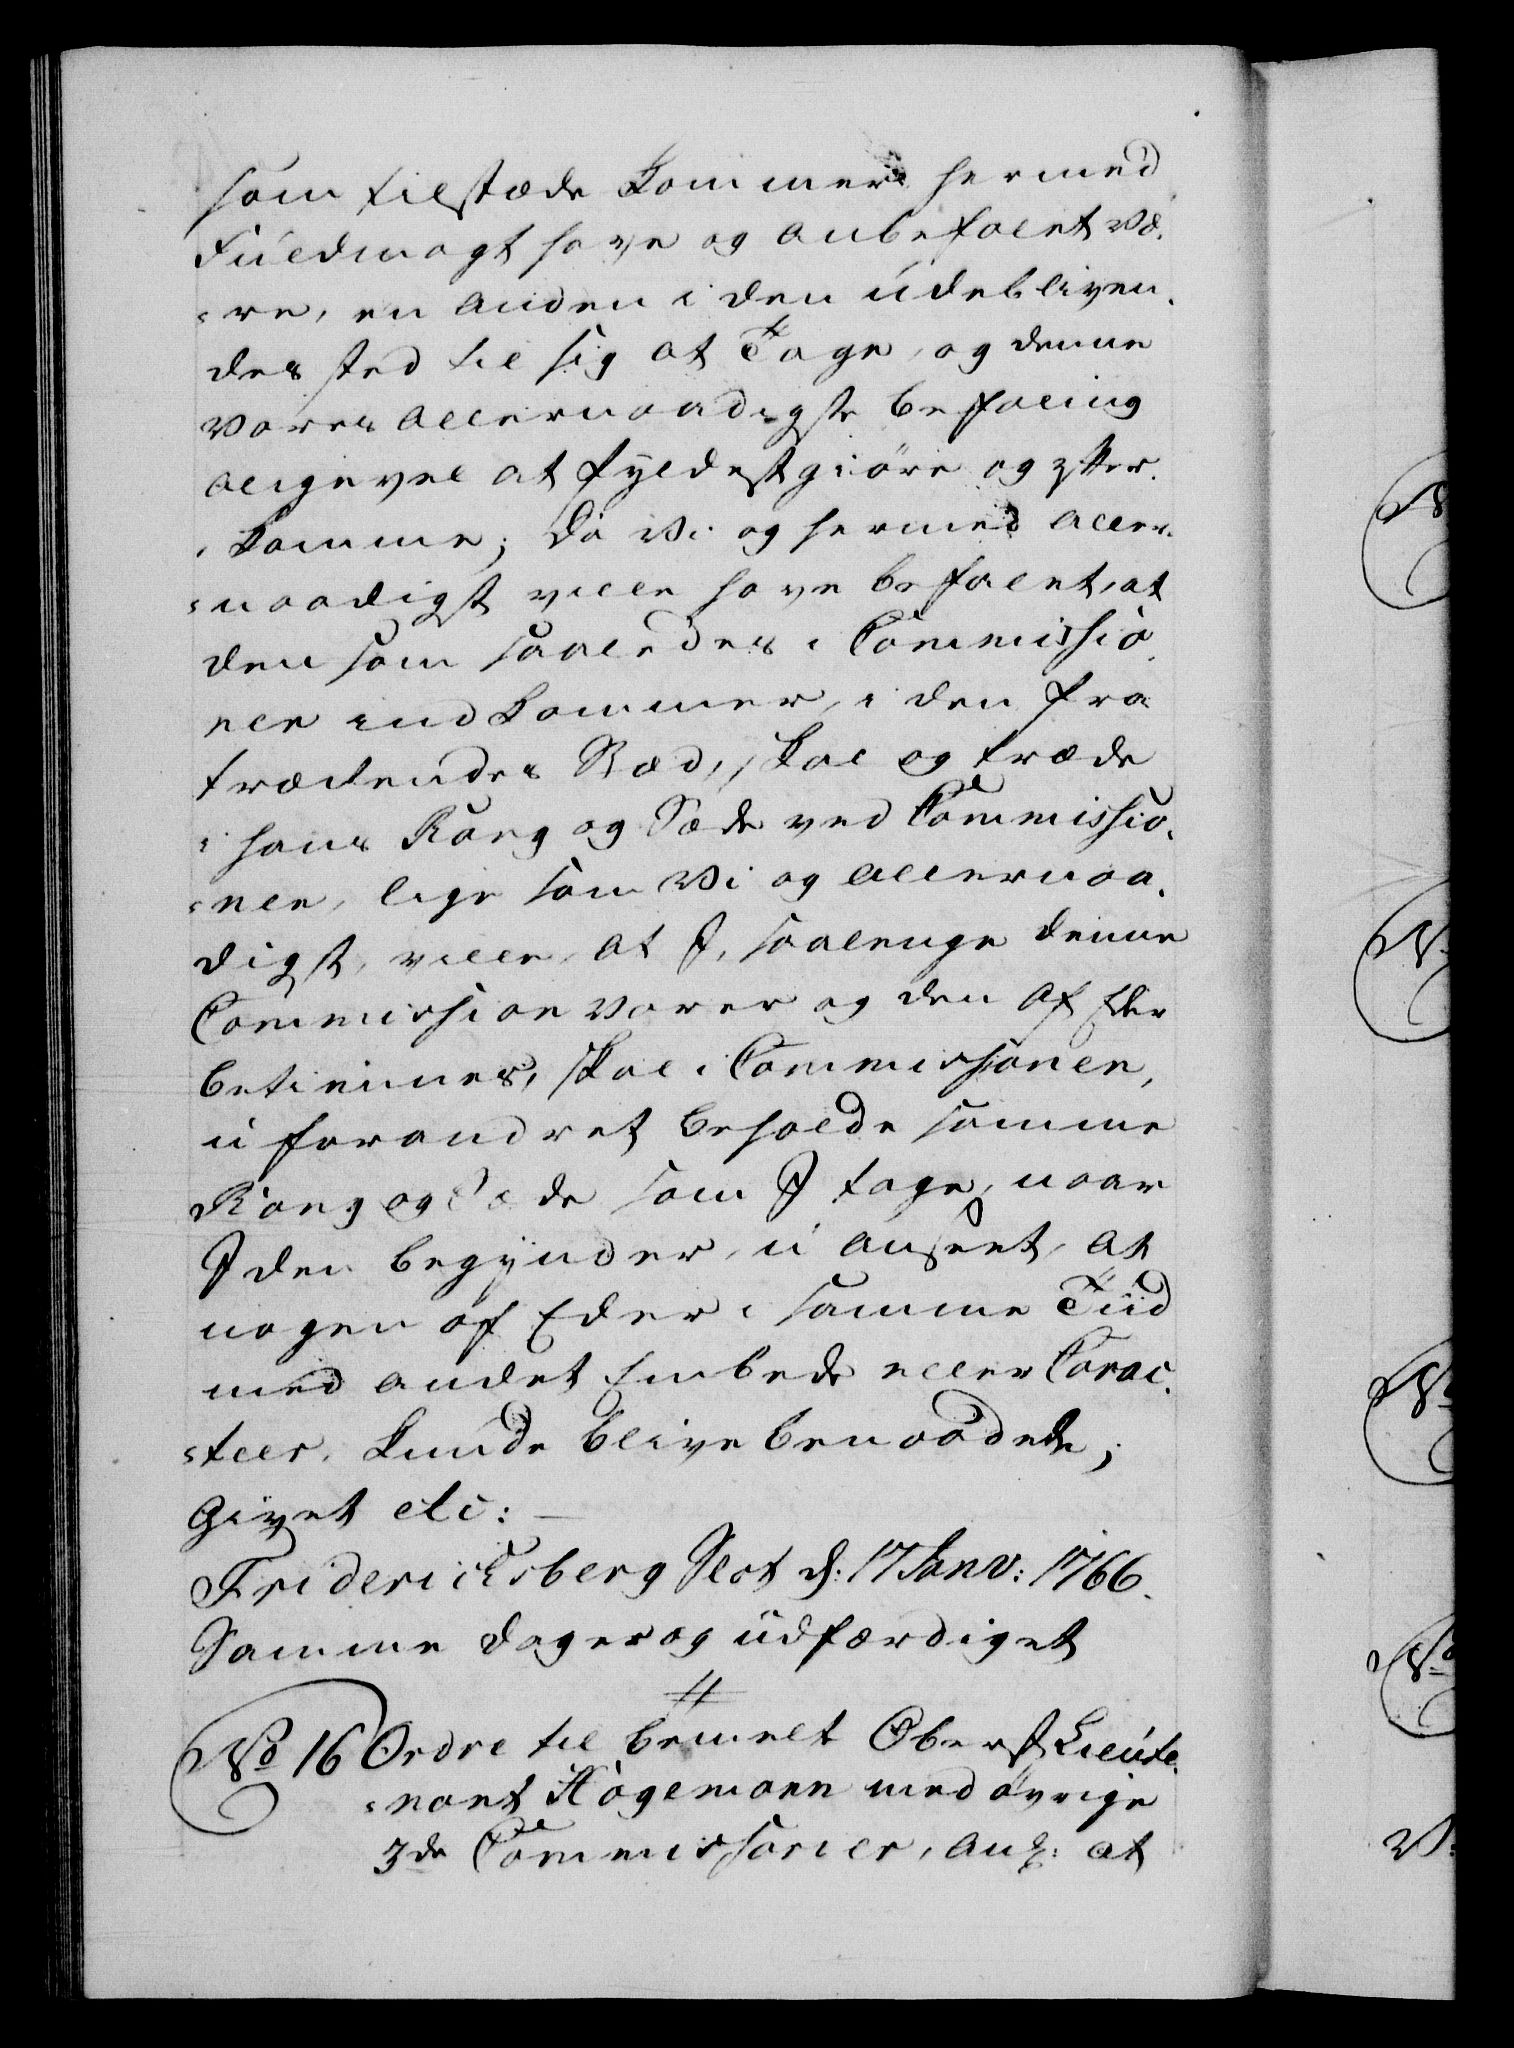 som tilstæde kommere hermed
Fuldmagt have og anbefalet væ-
-re, en anden i den udebliven-
des sted til sig at Tage, og denne
Vores allernaadigste befaling
aligevel at fyldestgiöre og efter-
-komme; da Vi og hermed aller-
-naadigst ville have befalet, at
den som saaledes i Commissio-
nen indkommer, i den fra
trædendes Stæd, skal og træde
i hans Rang og Sæde ved Commissio-
-nen, lige som Vi og allernaa-
digst, ville, at I, saalenge denne
Commission varer og den af Eder
betiennes, skal i Commissionen,
uforandret beholde samme
Rang og Sæde som I tage, naar
I den begynder, uanseet, at
nogen af Eder i samme Tiid
med andet Embede eller Carac-
-teer, kunde blive benaadede;
Givet etc:
Friderichsberg Slot d: 17 Janv: 1766.
Samme dager og udfærdiget
No 16 Ordre til bemelt Oberst Lieute-
-nant Hagemann med øvrige
3de Commissarier, ang: at